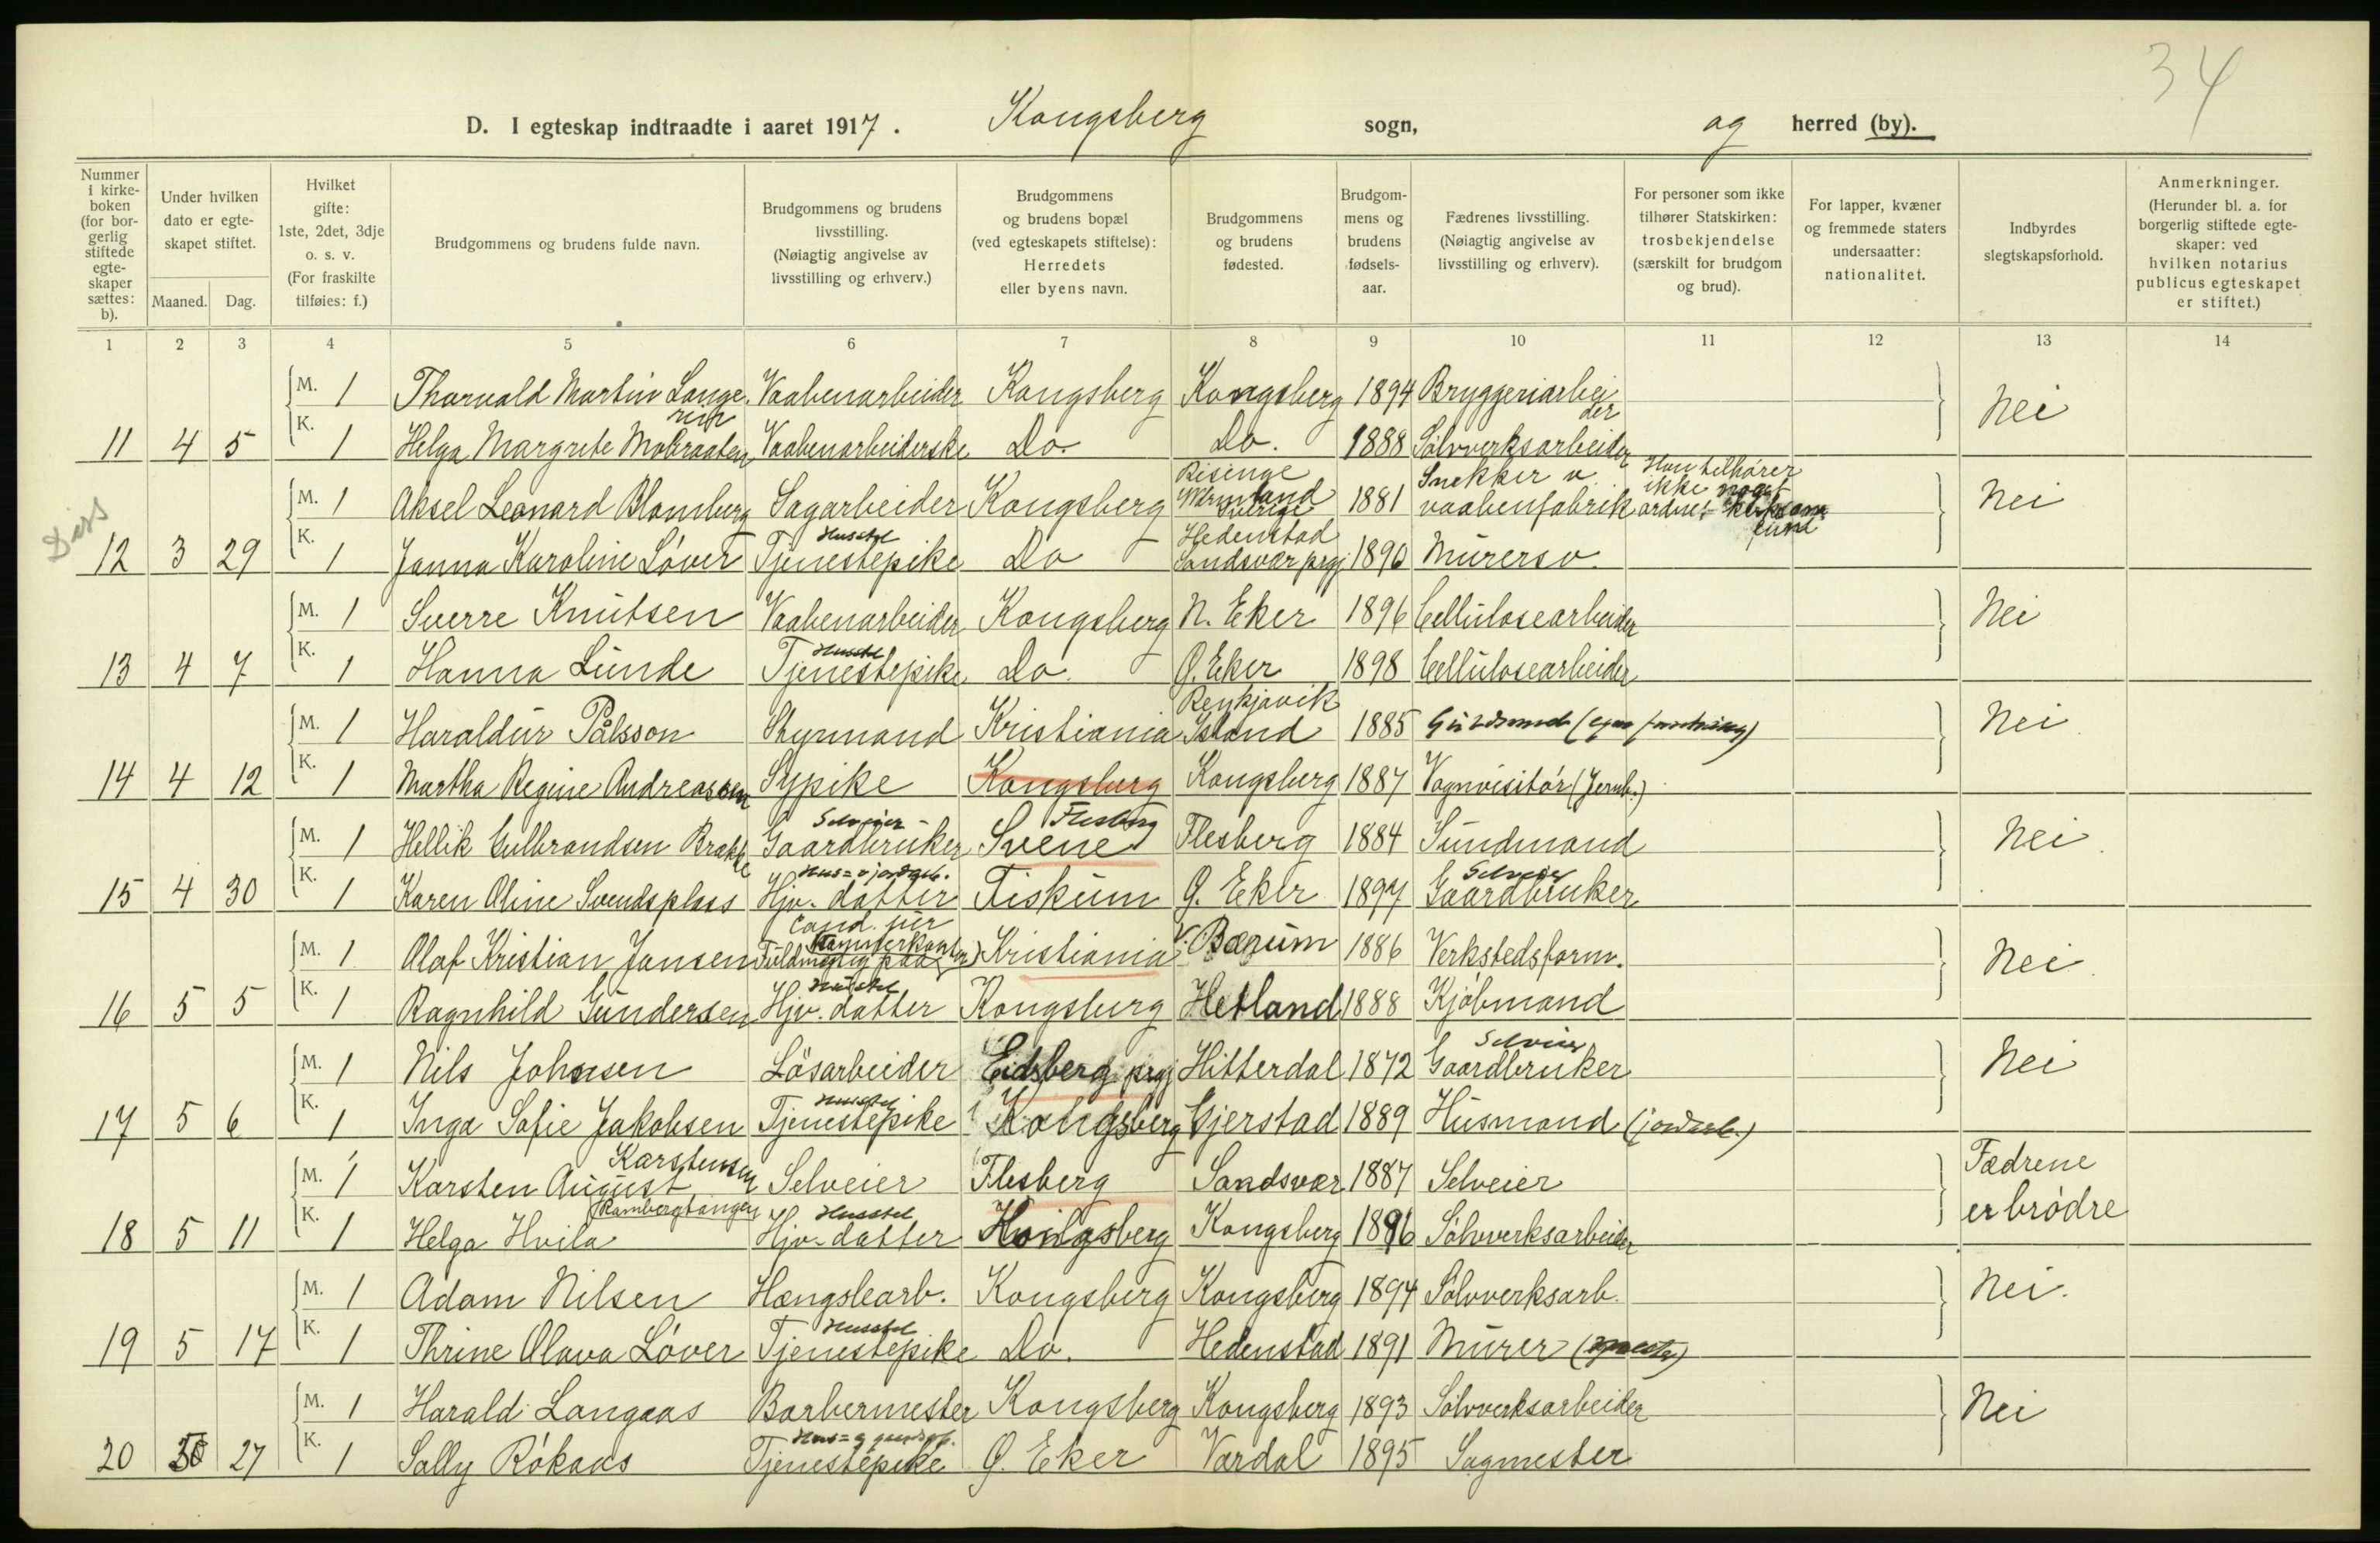 34
D. I egteskap indtraadte i aaret 1917. Kongsberg sogn, og herred (by).
Nummer i kirke-boken (for bor-gerlig stiftede egte-skaper sættes: b).
Under hvilken dato er egte-skapet stiftet.
Maaned. Dag.
Hvilket gifte: 1ste, 2det, 3dje o. s. v. (For fraskilte tilføies: f.)
Brudgommens og brudens fulde navn.
Brudgommens og brudens livsstilling. (Nøiagtig angivelse av livsstilling og erhverv.)
Brudgommens og brudens bopæl (ved egteskapets stiftelse): Herredets eller byens navn.
Brudgommens og brudens fødested.
Brudgom-mens og brudens fødsels-aar.
Fædrenes livsstilling. (Nøiagtig angivelse av livsstilling og erhverv).
For personer som ikke tilhører Statskirken: trosbekjendelse (særskilt for brudgom og brud).
For lapper, kvæner og fremmede staters undersaatter: nationalitet.
Indbyrdes slegtskapsforhold.
Anmerkninger. (Herunder bl. a. for borgerlig stiftede egte-skaper: ved hvilken notarius publicus egteskapet er stiftet.)
1 2 3 4 5 6 7 8 9 10 11 12 13 14
M. 1 Thorvald Martin Lange. Vaabenarbeider Kongsberg Kongsberg 1894 Bryggeriarbei
der Nei
11 4 5 K. 1 Helga Margrete Mobraaten Vaabenarbeiderske Do. Do. 1888 Sölvverksarbeider
Risinge Snekker v. Han tilhører
M. 1 Aksel Leonard Blomberg Sagarbeider Kongsberg Wermland Sverige 1881 vaabenfabrik ikke noget ordnet Nei
Husstel Hedenstad
12 3 29 K. 1 Janna Karoline Löver Tjenestepike Do Sandsvær prgj 1890 Murersv.
M. 1 Sverre Knutsen Vaabenarbeider Kongsberg N. Eker 1896 Cellulosearbeider Nei
Husstel
13 4 7 K. 1 Hanna Lunde Tjenestepike Do. Ø. Eker 1898 Cellulosearbeider
Reykjavik
M. 1 Haraldur Pálsson Styrmand Kristiania Island 1885 Nei
14 4 12 K. 1 Martha Regine Andreassen Sypike Kongsberg Kongsberg 1887 Vognvisitör (Jernb.)
Selveier Flesberg
M. 1 Hellik Gulbrandsen Brække Gaardbruker Svene Flesberg 1884 Sundmand Nei.
Hus= o jordarb. Selveier
15 4 30 K. 1 Karen Oline Svendsplass Hjv. datter Fiskum Ø. Eker 1897 Gaardbruker
Cand. jur
M. 1 Olaf Kristian Jansen Fuldmegtig paa Kristiania V. Bærum 1886 Verkstedsform. Nei
Husstel
16 5 5 K. 1 Ragnhild Gundersen Hjv. datter Kongsberg Hetland 1888 Kjöbmand
Selveier
M. 1 Nils Johnsen Lösarbeider Eidsberg prgj Hitterdal 1872 Gaardbruker Nei
Husstel
17 5 6 K. 1 Inga Sofie Jakobsen Tjenestepike Kongsberg Gjerstad 1889 Husmand (jordarb.)
Karstensen Fædrene
M. 1 Karsten August Rambergtangen Selveier Flesberg Sandsvær 1887 Selveier er brödre
Husstel
18 5 11 K. 1 Helga Hvila Hjv. datter Kongsberg Kongsberg 1896 Sölvverksarbeider
M. 1 Adam Nilsen Hængslearb. Kongsberg Kongsberg 1894 Sölvverksarb. Nei.
Husstel
19 5 17 K. 1 Thrine Olava Löver Tjenestepike Do. Hedenstad 1891 Murer
M. 1 Harald Langaas Barbermester Kongsberg Kongsberg 1893 Sölvverksarbeider Nei
20 5 27 K. 1 Sally Rökaas Tjenestepike Ø. Eker Vardal 1895 Sagmester